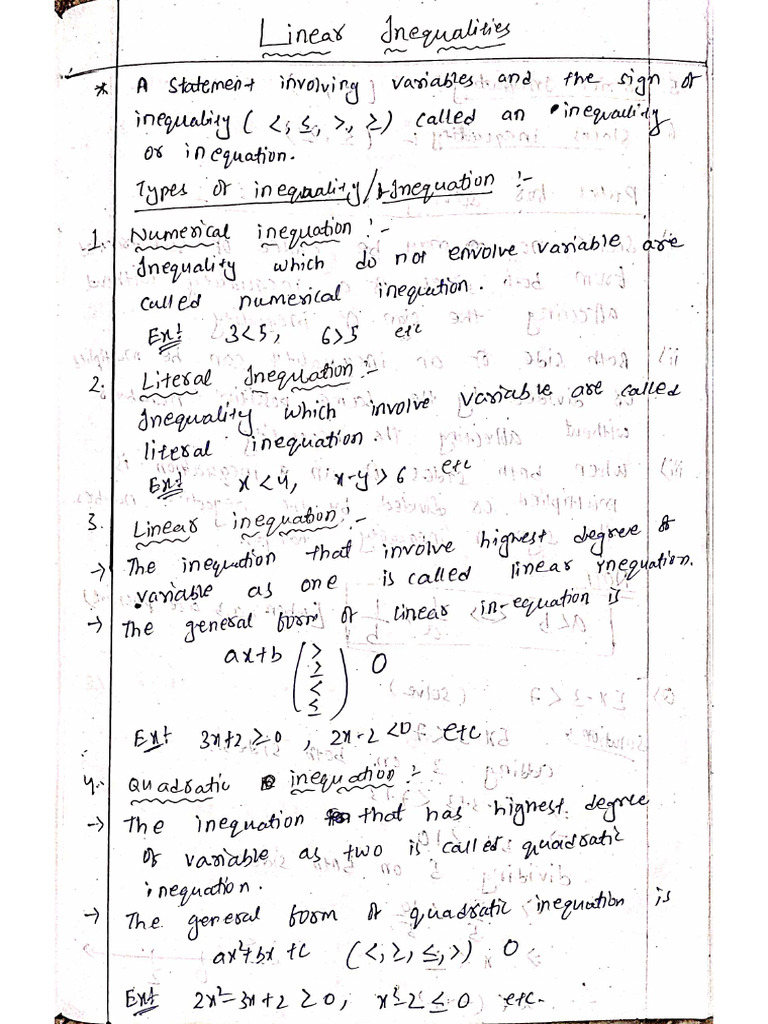 Linear Inequalities
* A statement involving variables and the sign of
inequality ( <, ≤, >, ≥) called an inequality
or inequation.
Types of inequality/Inequation :-
1. Numerical inequation :-
Inequality which do not envolve variable are
called numerical inequation.
Ex:- 3<5, 6>5 etc
2. Literal Inequation :-
Inequality which involve variable are called
literal inequation
Ex:- x<4, x-y>6 etc
3. Linear inequation :-
→ The inequation that involve highest degree of
variable as one is called linear inequation.
→ The general form of linear in-equation is
ax+b ( > ≥ < ≤ ) 0
Ex:- 3x+2 ≥0 , 2x-2 <0 etc
4. Quadratic inequation :-
→ The inequation that has highest degree
of variable as two is called quadratic
inequation.
→ The general form of quadratic inequation is
ax²+bx+c (<, ≥, ≤, >) 0
Ex:- 2x²-3x+2 ≥0, x²-2 ≤ 0 etc.